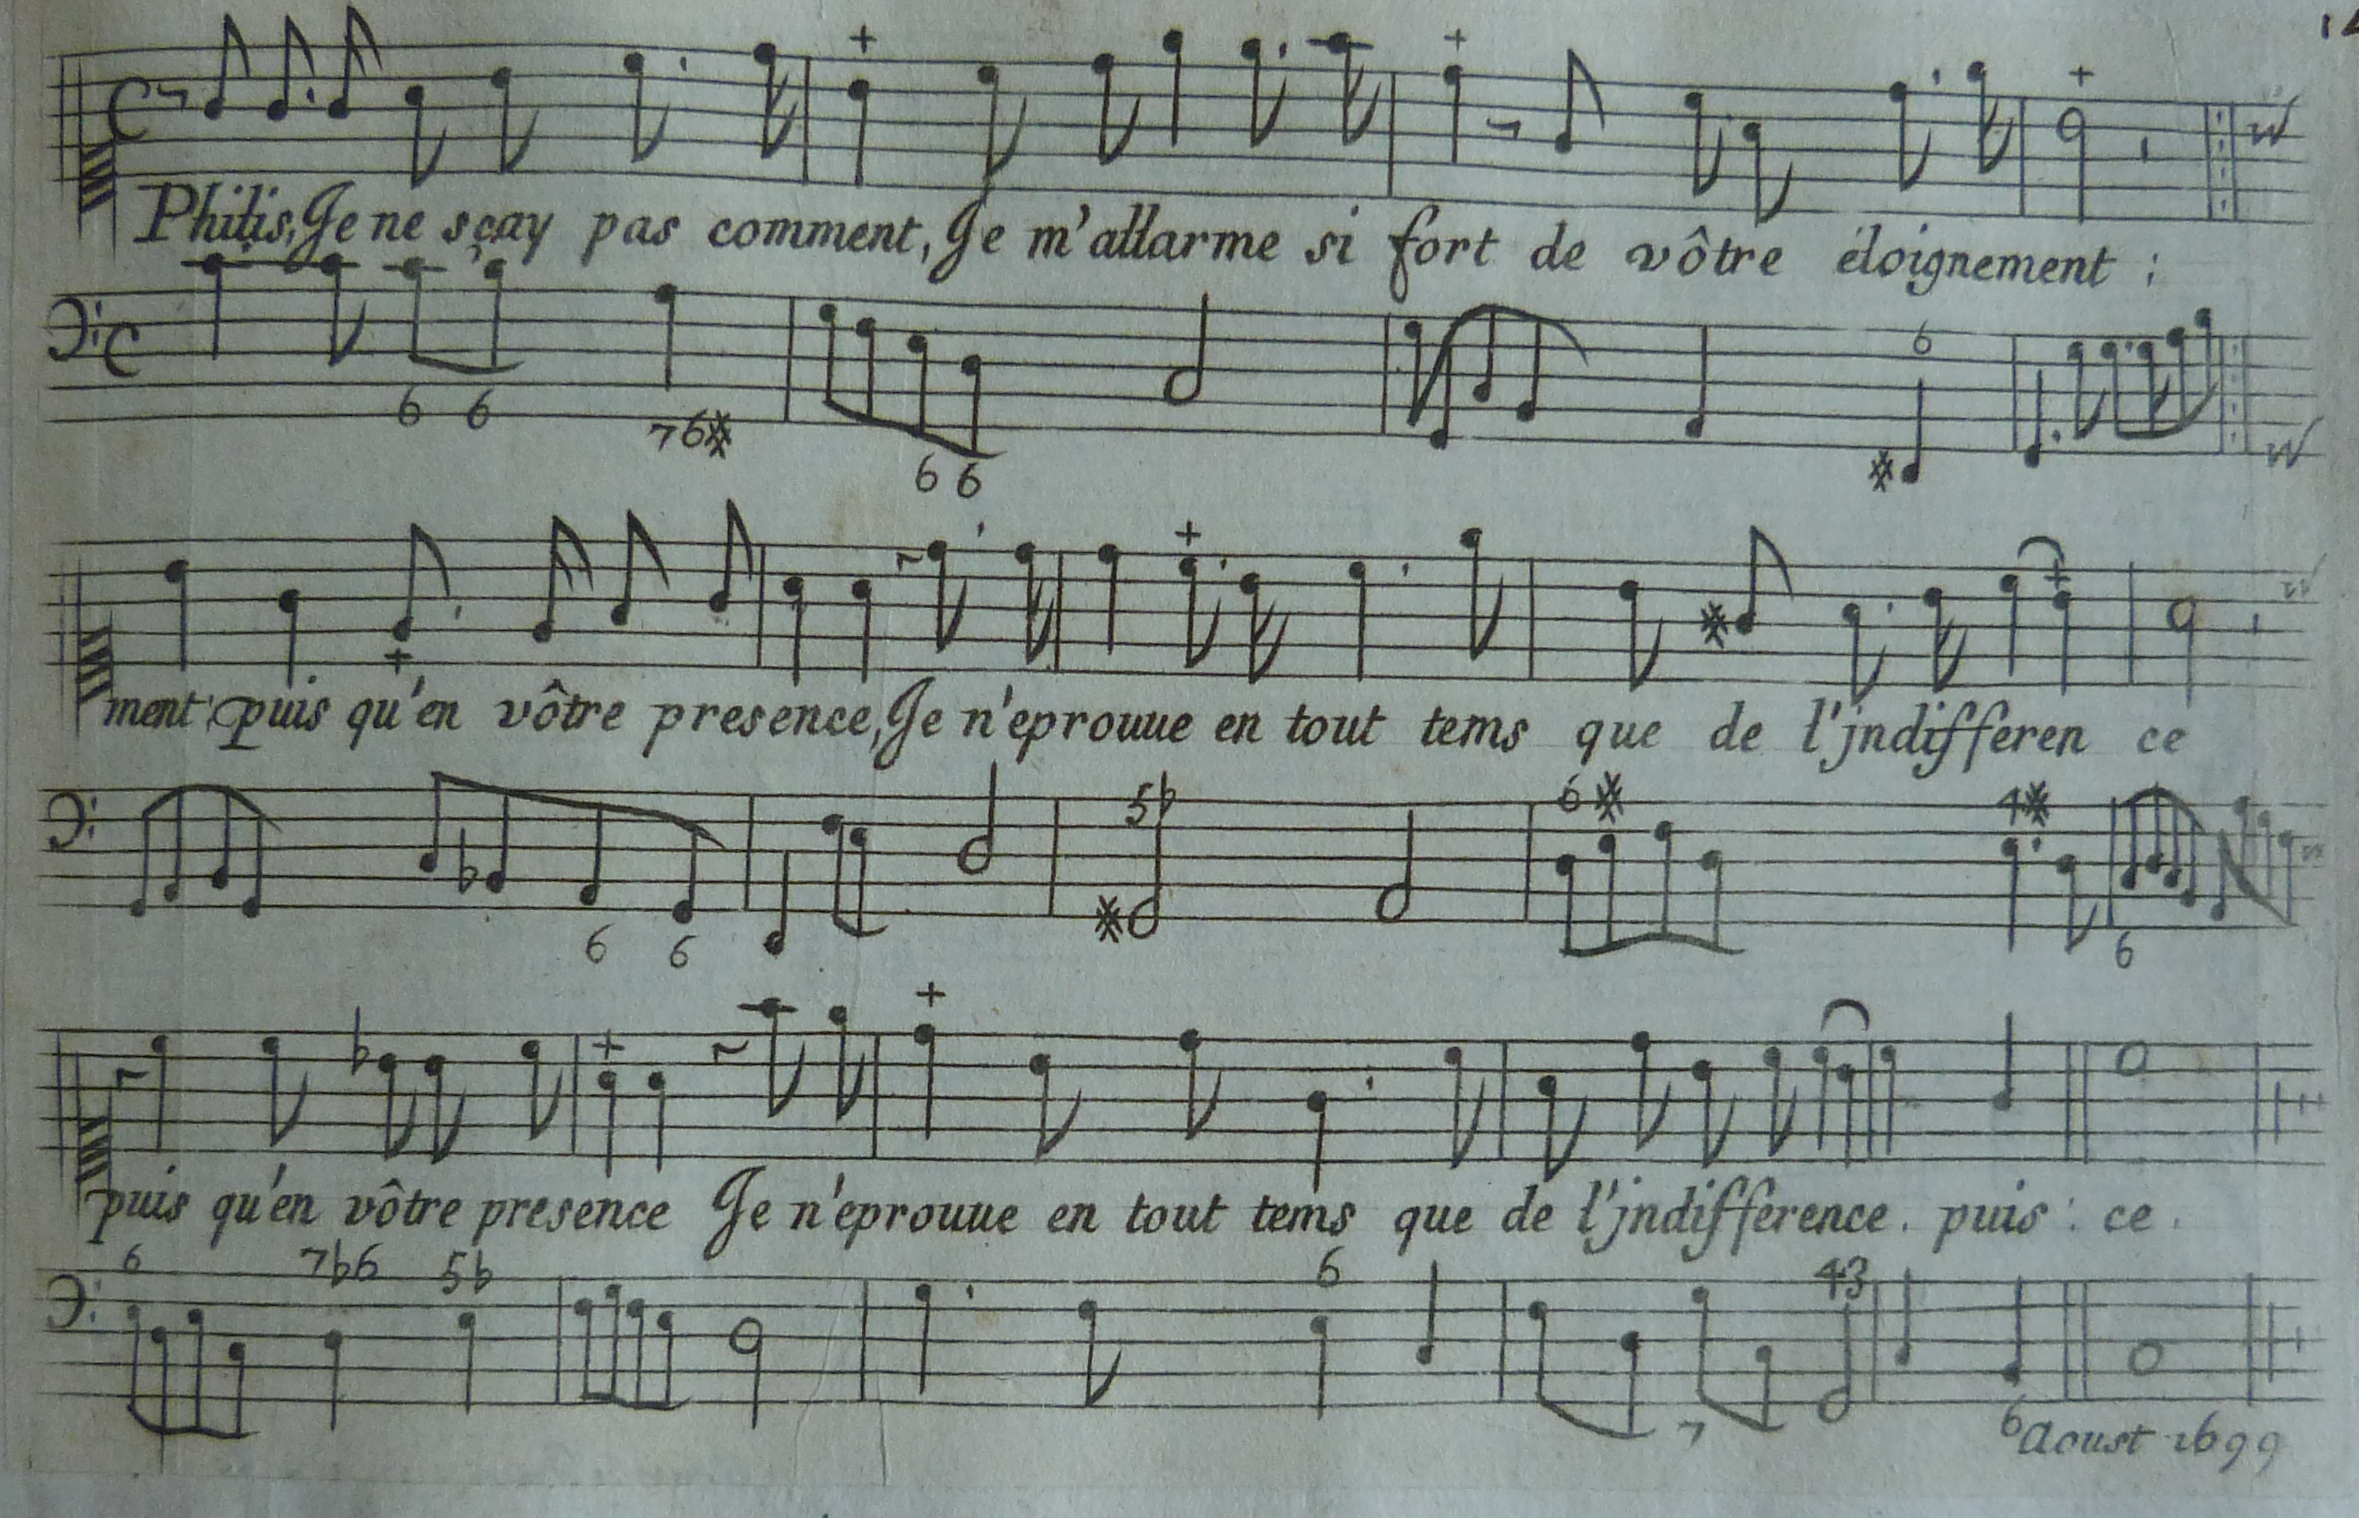 Philis, Je ne sçay pas comment, Je m'allarme si fort de vôtre éloignement ;
6 6 76 6 6 6
ment puis qu'en vôtre presence, Je n'eprouue en tout tems que de l'jndifferen ce
5b 6 4
6 6 6
puis qu'en vôtre presence Je n'eprouue en tout tems que de l'jndifference . puis : ce .
6 7b6 5b 6 43
7 6
Aoust 1699